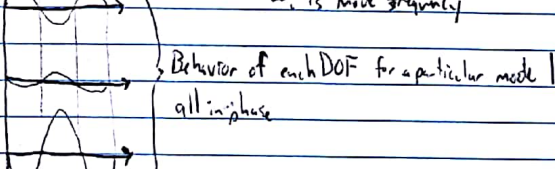 is mode frequency
Behavior of each DOF for a particular mode
all in-phase